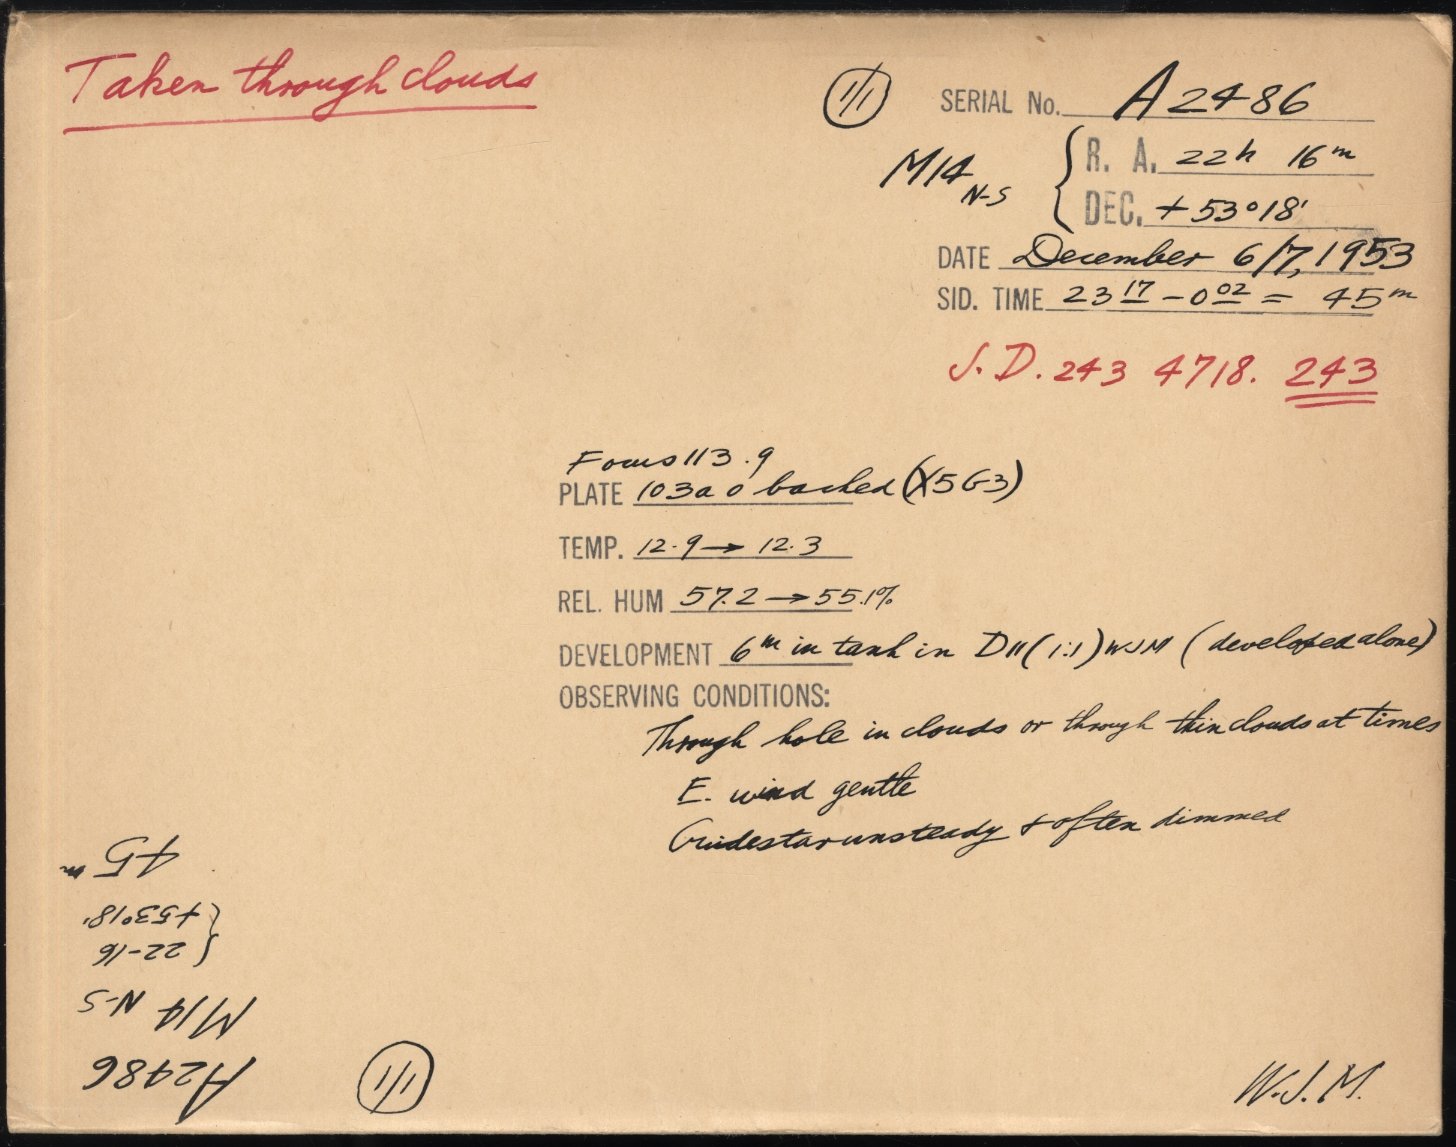 Taken through clouds
1/1
SERIAL No. A2486
M14 N-S
R. A. 22h 16m
DEC. +53°18'
DATE December 6/7, 1953
SID. TIME 23 17 - 0 02 = 45m
J.D. 243 4718. 243
Focus 113.9
PLATE 103a o backed (X5G3)
TEMP. 12.9 → 12.3
REL. HUM 57.2 → 55.1%
DEVELOPMENT 6m in tank in D11 (1:1) WJM (developed alone)
OBSERVING CONDITIONS:
Through hole in clouds or through thin clouds at times
E. wind gentle
Guidestar unsteady & often dimmed
A2486
M14 N-S
22-16
+53°18'
45m
1/1
W.J.M.